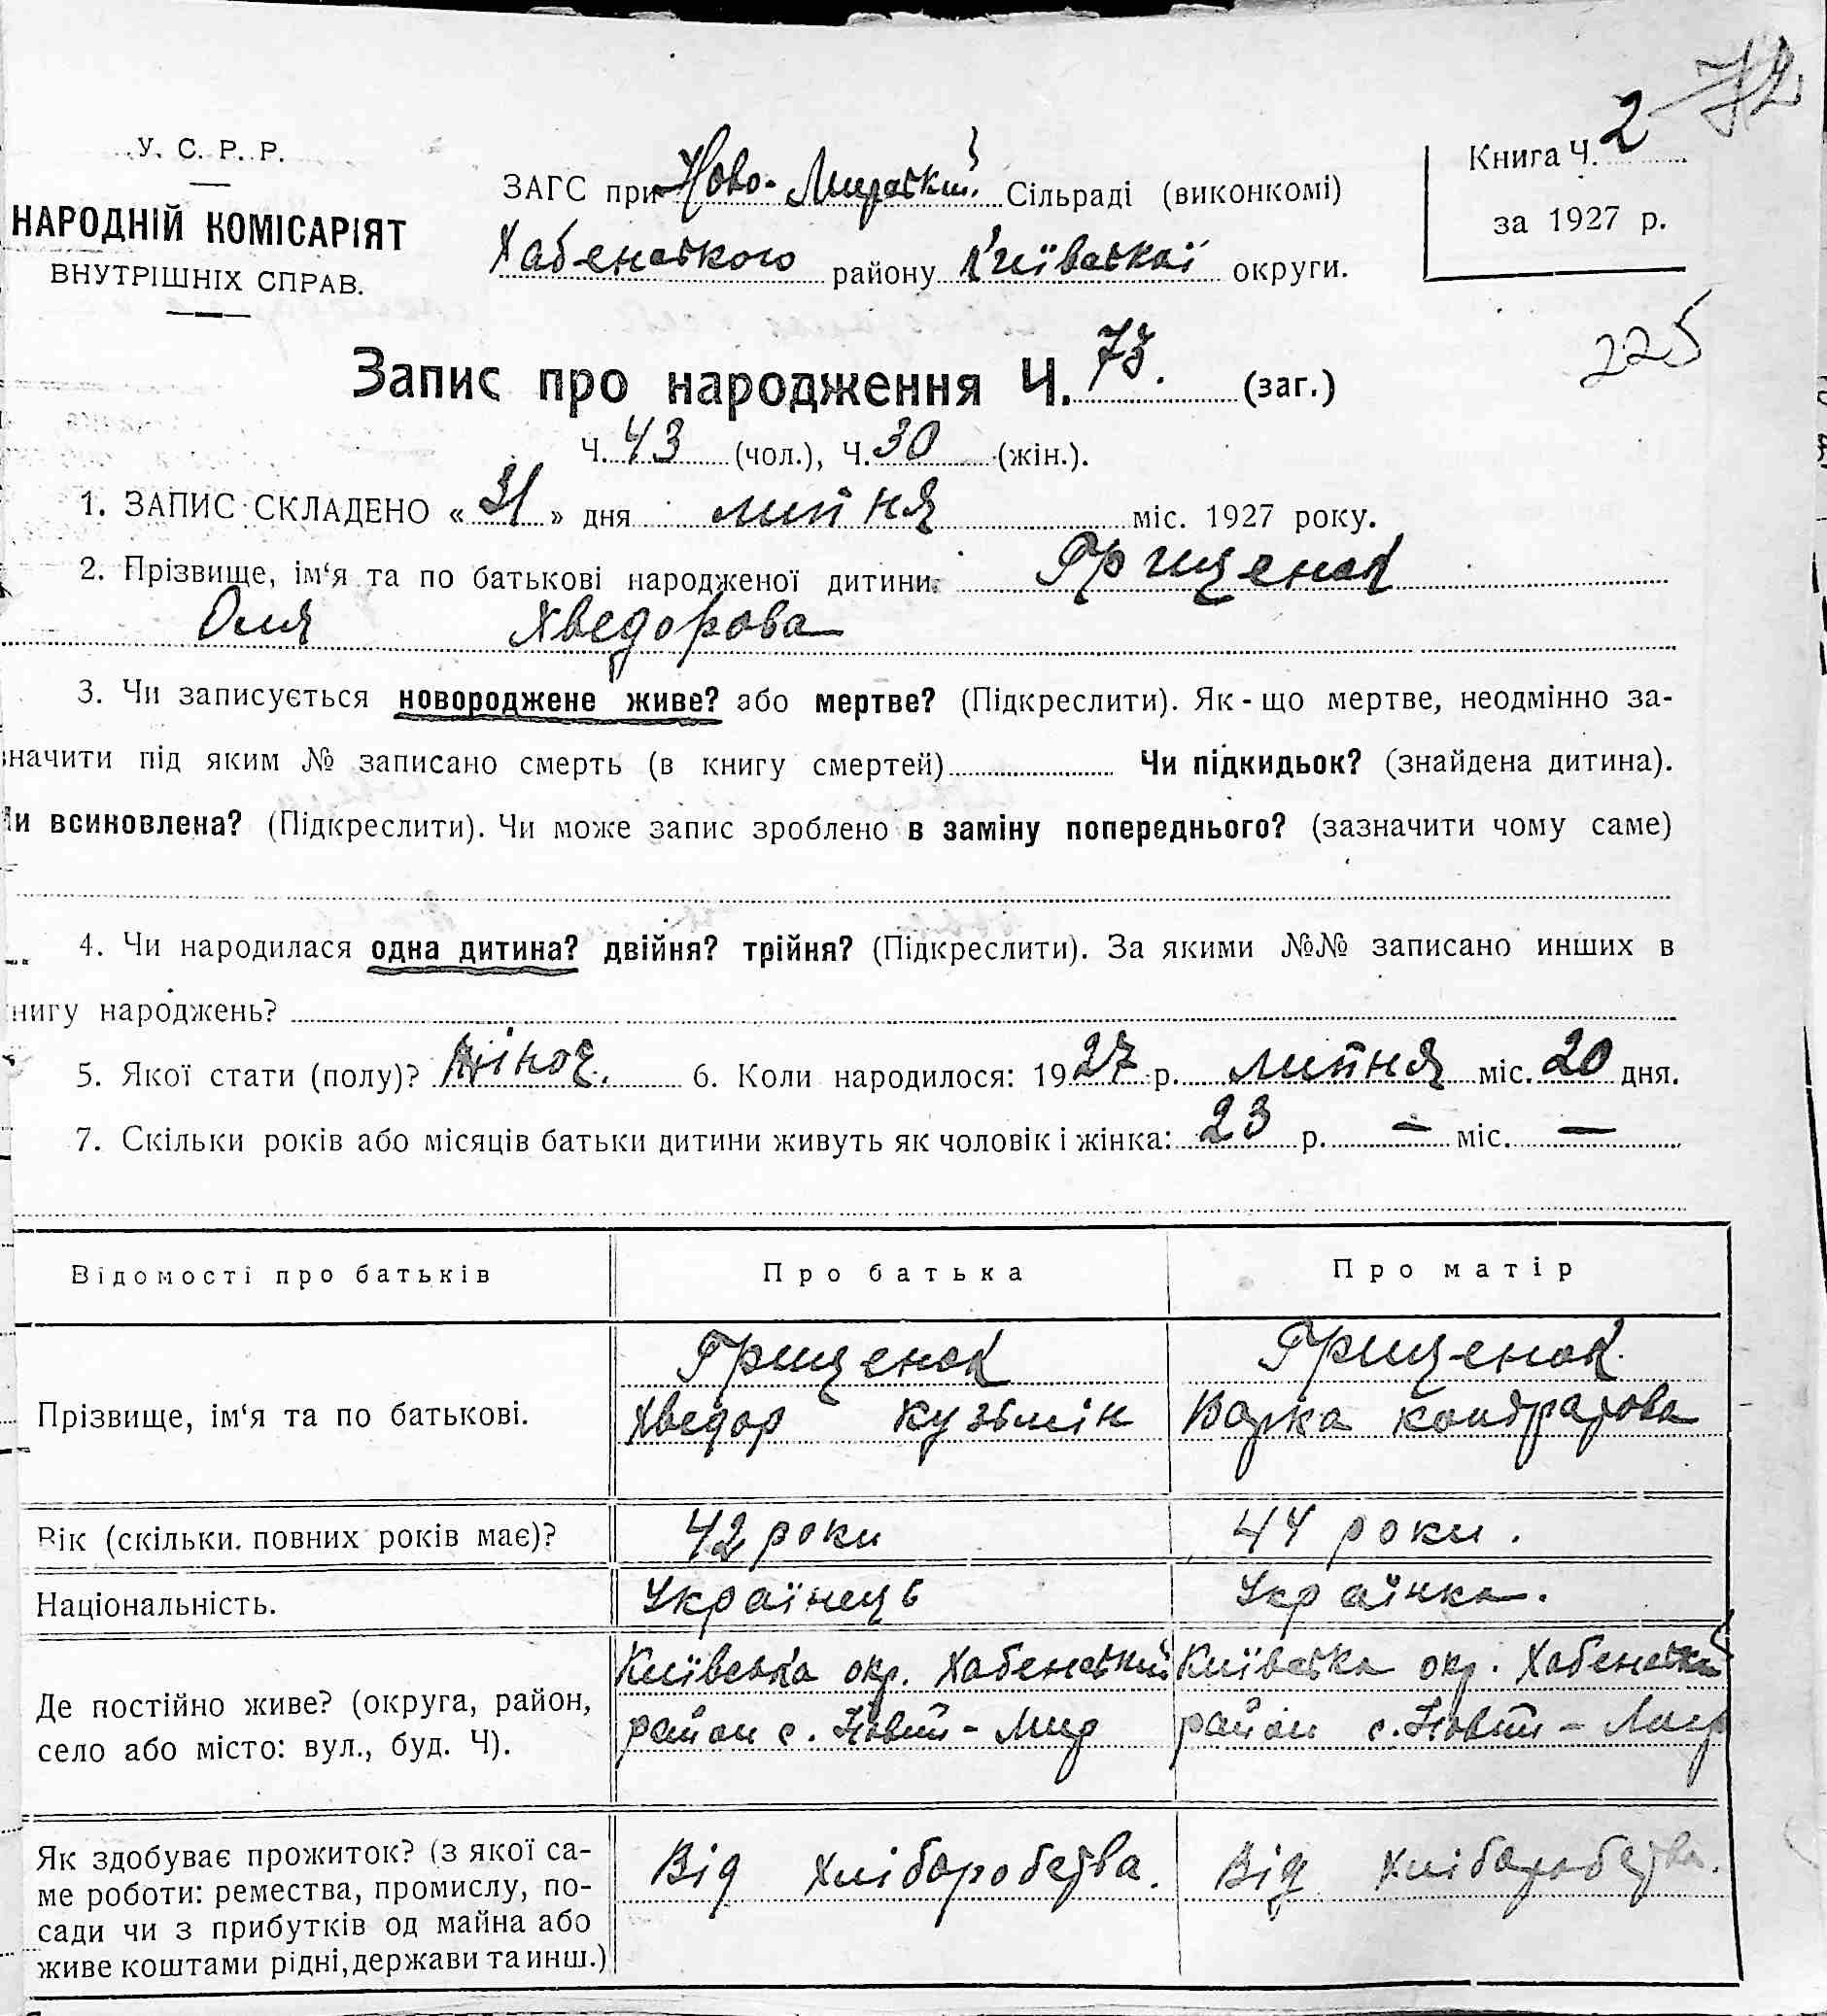 72
У. С. Р. Р.
НАРОДНІЙ КОМІСАРІЯТ
ВНУТРІШНІХ СПРАВ.
ЗАГС при Ново-Мирській Сільраді (виконкомі)
Хабенського району Київської округи.
Книга Ч. 2
за 1927 р.
225
Запис про народження Ч. 73. (заг.)
Ч. 43 (чол.), Ч. 30 (жін.).
1. ЗАПИС СКЛАДЕНО « 31 » дня липня міс. 1927 року.
2. Прізвище, ім‘я та по батькові народженої дитини: Грищенок
Оля Хведорова
3. Чи записується новороджене живе? або мертве? (Підкреслити). Як-що мертве, неодмінно за-
значити під яким № записано смерть (в книгу смертей) Чи підкидьок? (знайдена дитина).
Чи всиновлена? (Підкреслити). Чи може запис зроблено в заміну попереднього? (зазначити чому саме)
4. Чи народилася одна дитина? двійня? трійня? (Підкреслити). За якими №№ записано инших в
нигу народжень?
5. Якої стати (полу)? жіноч. 6. Коли народилося: 1927 р. липня міс. 20 дня.
7. Скільки років або місяців батьки дитини живуть як чоловік і жінка: 23 р. — міс. —
Відомості про батьків Про батька Про матір
Прізвище, ім‘я та по батькові.
Грищенок
Хведор Кузьмін
Грищенок
Варка Кондратова
Вік (скільки. повних років має)? 42 роки 44 роки.
Національність. Українець Українка.
Де постійно живе? (округа, район,
село або місто: вул., буд. Ч).
Київська окр. Хабенський
район с. Новий-Мир
Київська окр. Хабенський
район с. Новий-Мир
Як здобуває прожиток? (з якої са-
ме роботи: ремества, промислу, по-
сади чи з прибутків од майна або
живе коштами рідні, держави та инш.)
Від хліборобства.
Від хліборобства.